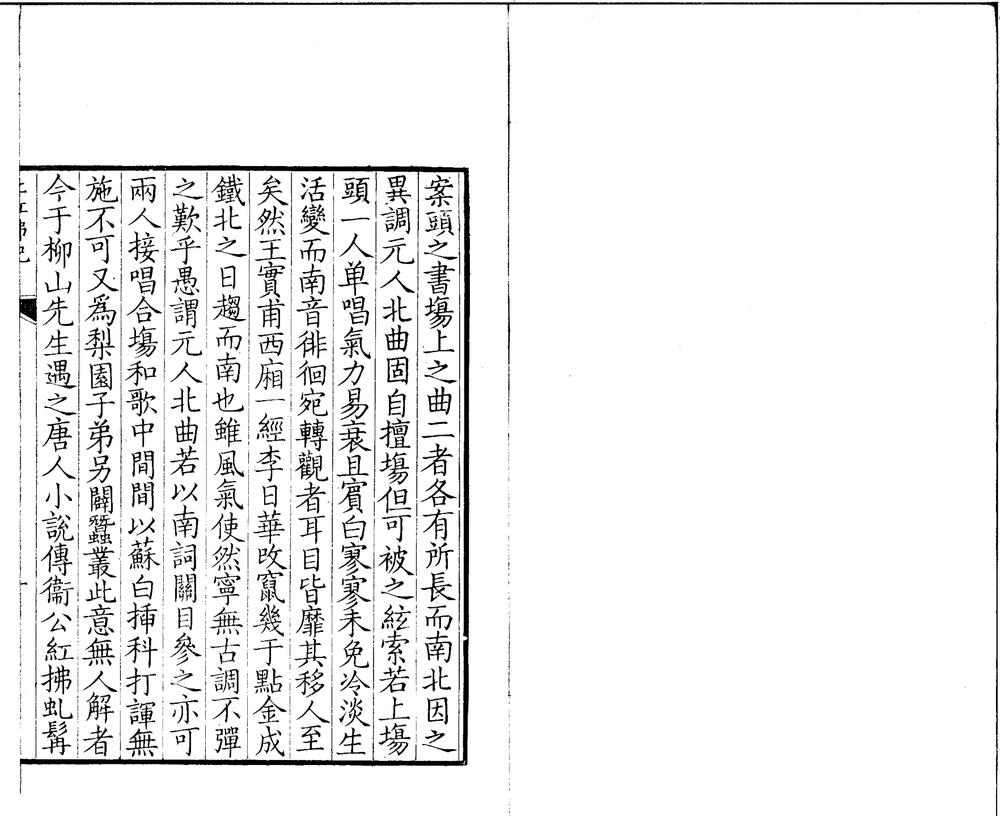 案頭之書塲上之曲二者各有所長而南北因之
異調元人北曲固自擅塲但可被之絃索若上塲
頭一人单唱氣力易衰且賓白寥寥未免冷淡生
活變而南音徘徊宛轉觀者耳目皆靡其移人至
矣然王實甫西廂一經李日華改竄幾于點金成
鐵北之日趨而南也雖風氣使然寧無古調不彈
之歎乎愚謂元人北曲若以南詞關目參之亦可
兩人接唱合塲和歌中間間以蘇白揷科打諢無
施不可又為梨園子弟另闢蠶叢此意無人解者
今于柳山先生遇之唐人小說傳衞公紅拂虬髯